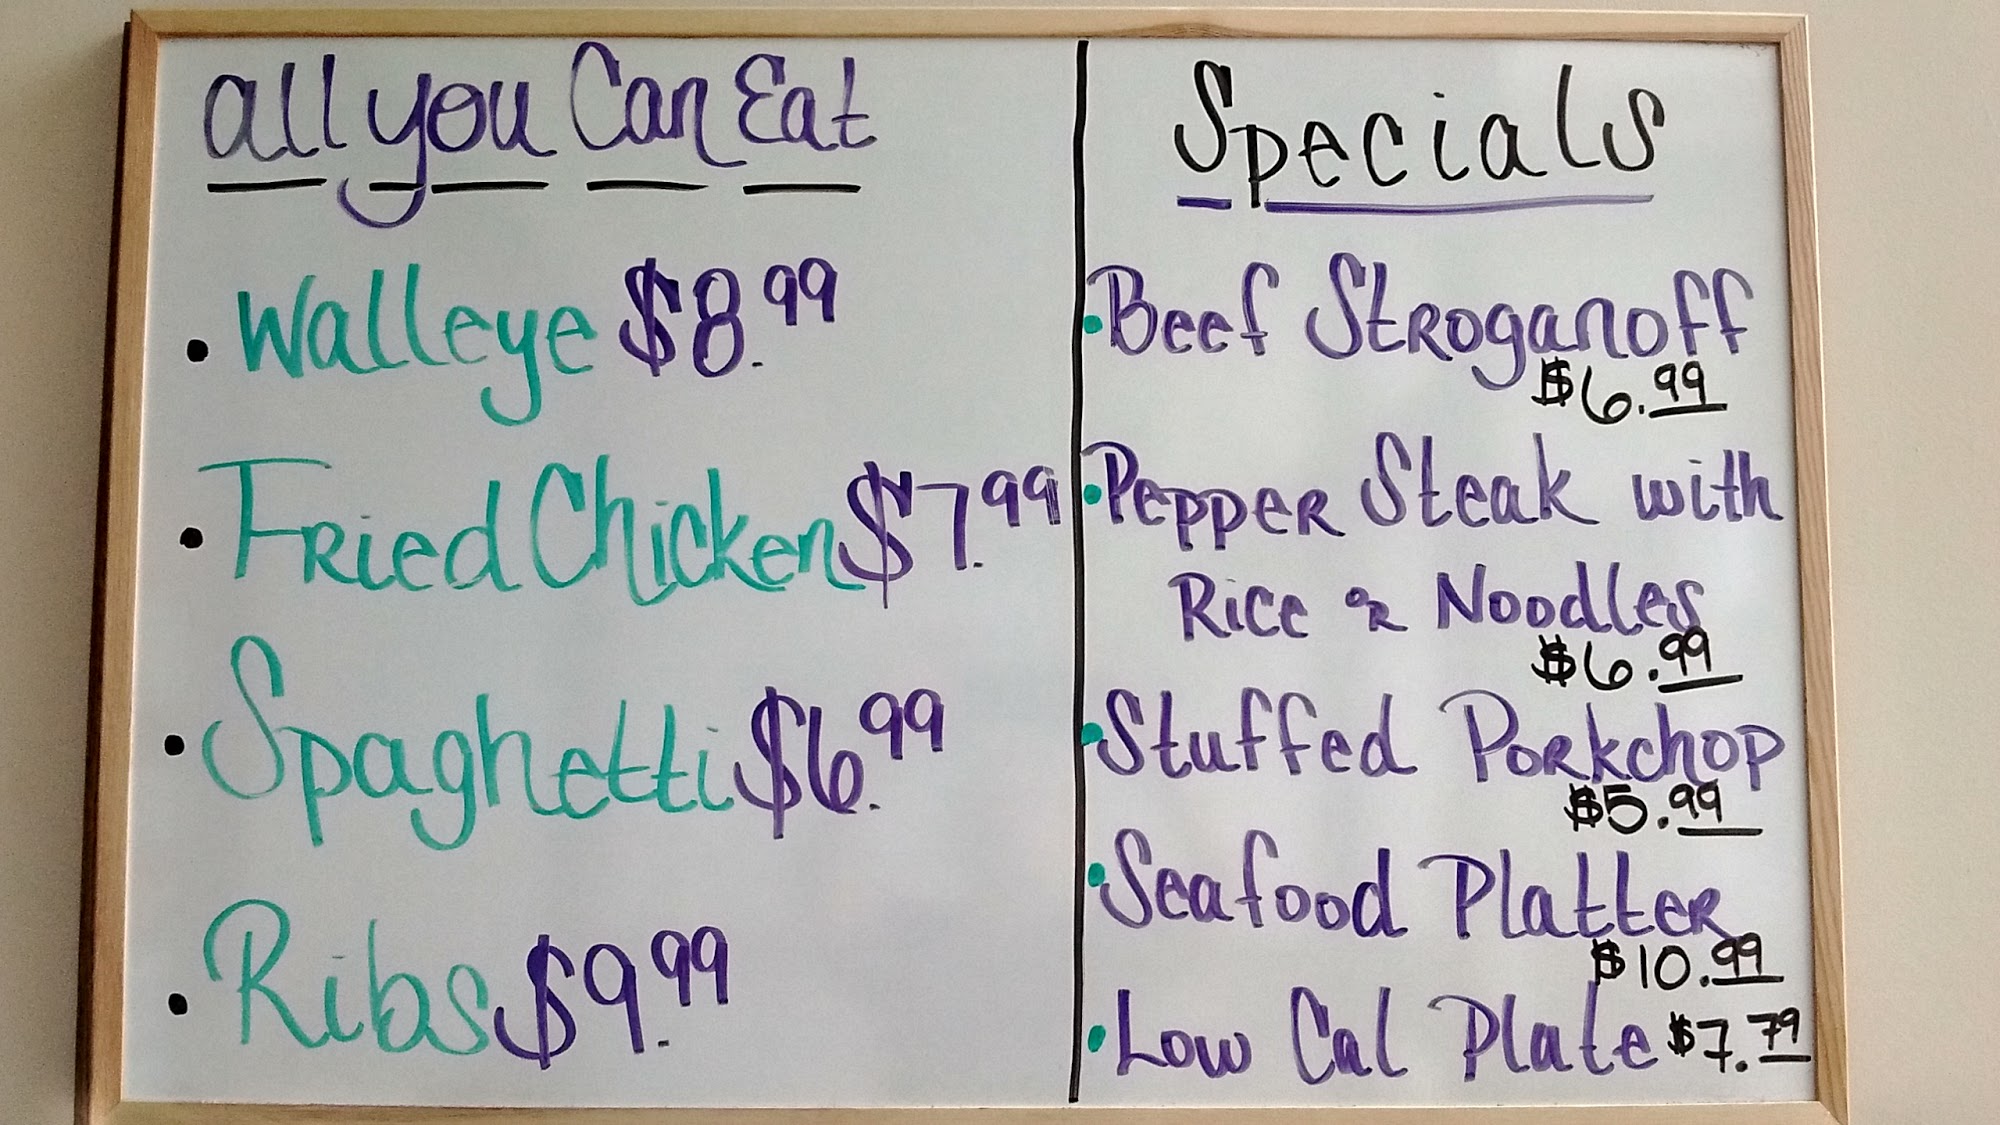 all you Can Eat
• Walleye $8.99
• Fried Chicken $7.99
• Spaghetti $6.99
• Ribs $9.99
Specials
• Beef Stroganoff
$6.99
• Pepper Steak with
Rice or Noodles
$6.99
• Stuffed Porkchop
$5.99
• Seafood Platter
$10.99
• Low Cal Plate $7.79